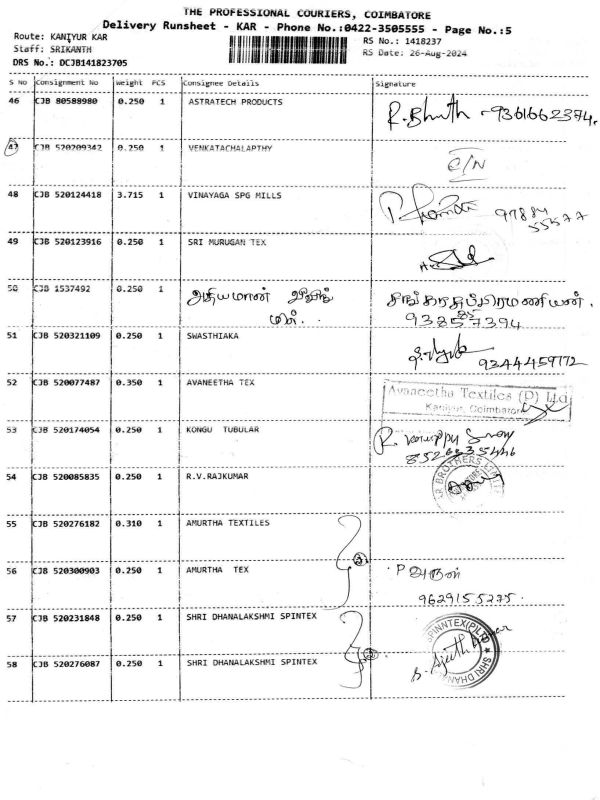 THE PROFESSIONAL COURIERS, COIMBATORE
Delivery Runsheet - KAR - Phone No.:0422-3505555 - Page No.:5
Route: KANIYUR KAR
RS No.: 1418237
Staff: SRIKANTH
RS Date: 26-Aug-2024
DRS No.: DCJB141823705
S No Consignment No Weight PCS Consignee Details Signature
46 CJB 80588980 0.250 1 ASTRATECH PRODUCTS 9361662374
47 CJB 520209342 0.250 1 VENKATACHALAPTHY
48 CJB 520124418 3.715 1 VINAYAGA SPG MILLS
49 CJB 520123916 0.250 1 SRI MURUGAN TEX
50 CJB 1537492 0.250 1 அதியமான்
51 CJB 520321109 0.250 1 SWASTHIAKA 9344459172
52 CJB 520077487 0.350 1 AVANEETHA TEX Avaneetha Textiles (P) Ltd
Kaniyur, Coimbatore
53 CJB 520174054 0.250 1 KONGU TUBULAR
54 CJB 520085835 0.250 1 R.V.RAJKUMAR BROTHERS LIMITED
55 CJB 520276182 0.310 1 AMURTHA TEXTILES
56 CJB 520300903 0.250 1 AMURTHA TEX P அருண்
9629155275
57 CJB 520231848 0.250 1 SHRI DHANALAKSHMI SPINTEX
58 CJB 520276087 0.250 1 SHRI DHANALAKSHMI SPINTEX